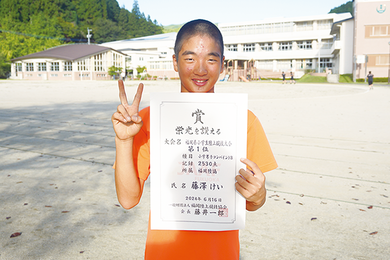 賞
栄光を讃える
大会名 福岡県小学生陸上競技大会
第1位
種目 小学男子コンバインドB
記録 2530点
所属 福岡陸協
氏名 藤澤 けい
2024年 6月16日
一般財団法人 福岡陸上競技協会
会長 藤井一郎